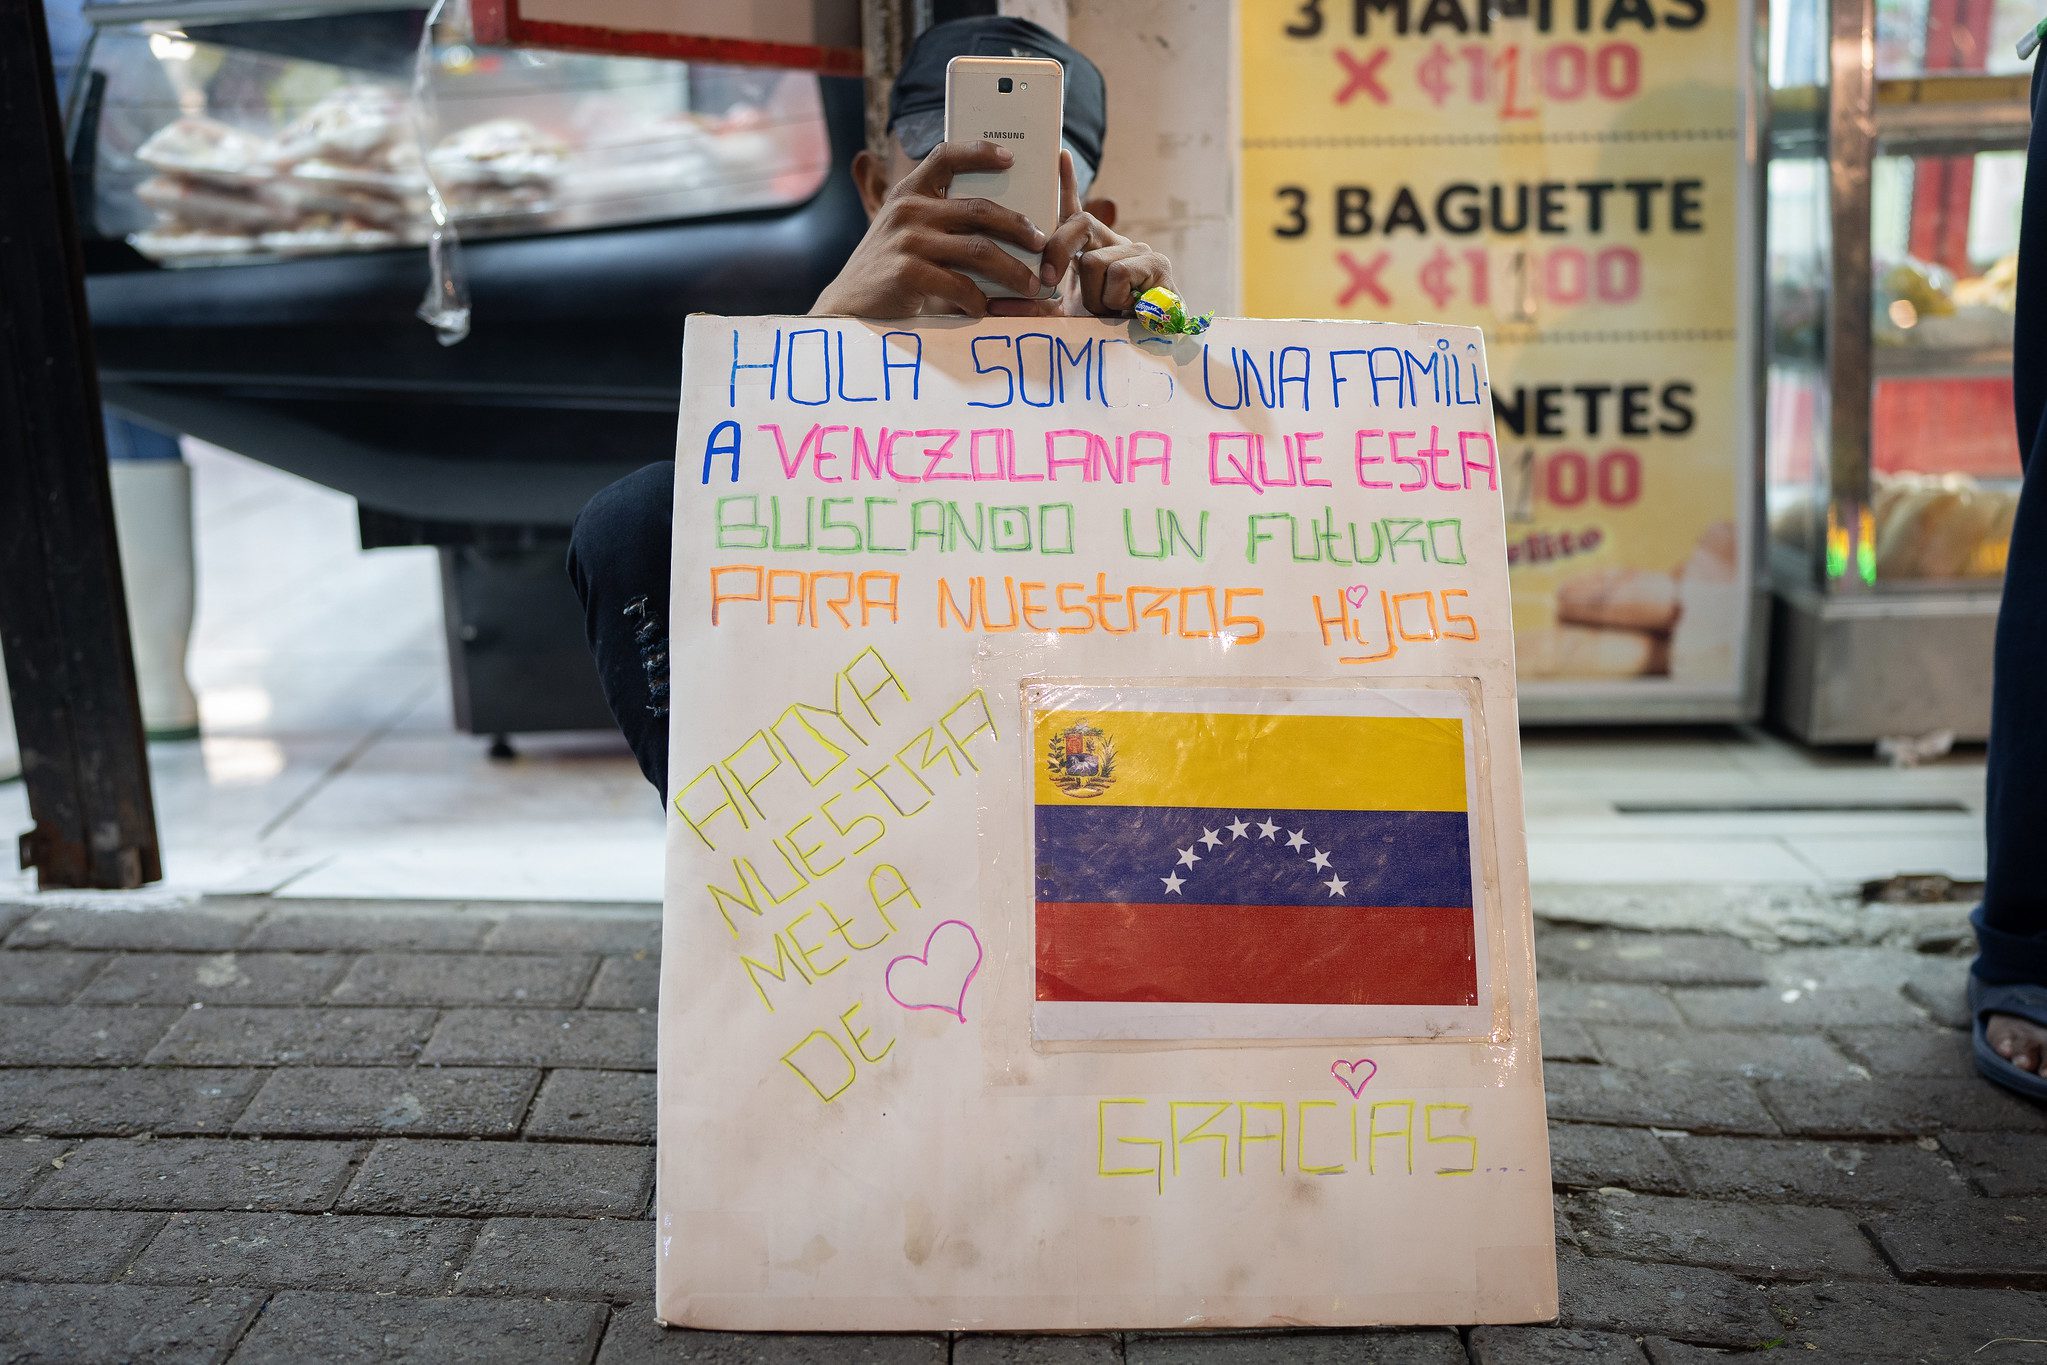 3 MANITAS
X ₡1100
3 BAGUETTE
X ₡1100
NETES
100
SAMSUNG
HOLA SOMOS UNA FAMILI-
A VENEZOLANA QUE EStA
BUSCANDO UN FUtURO
PARA NUEStROS HijOS
APOYA
NUEStRA
MEtA
DE
GRACIAS...